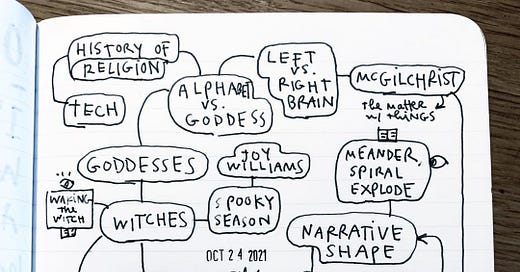 HISTORY OF
RELIGION
TECH
ALPHABET
VS.
GODDESS
LEFT
VS.
RIGHT
BRAIN
MCGILCHRIST
The MATTER
W/ THINGS
MEANDER,
SPIRAL
EXPLODE
GODDESSES
JOY
WILLIAMS
WAKING
the
WITCH
WITCHES
SPOOKY
SEASON
OCT 24 2021
NARRATIVE
SHAPE